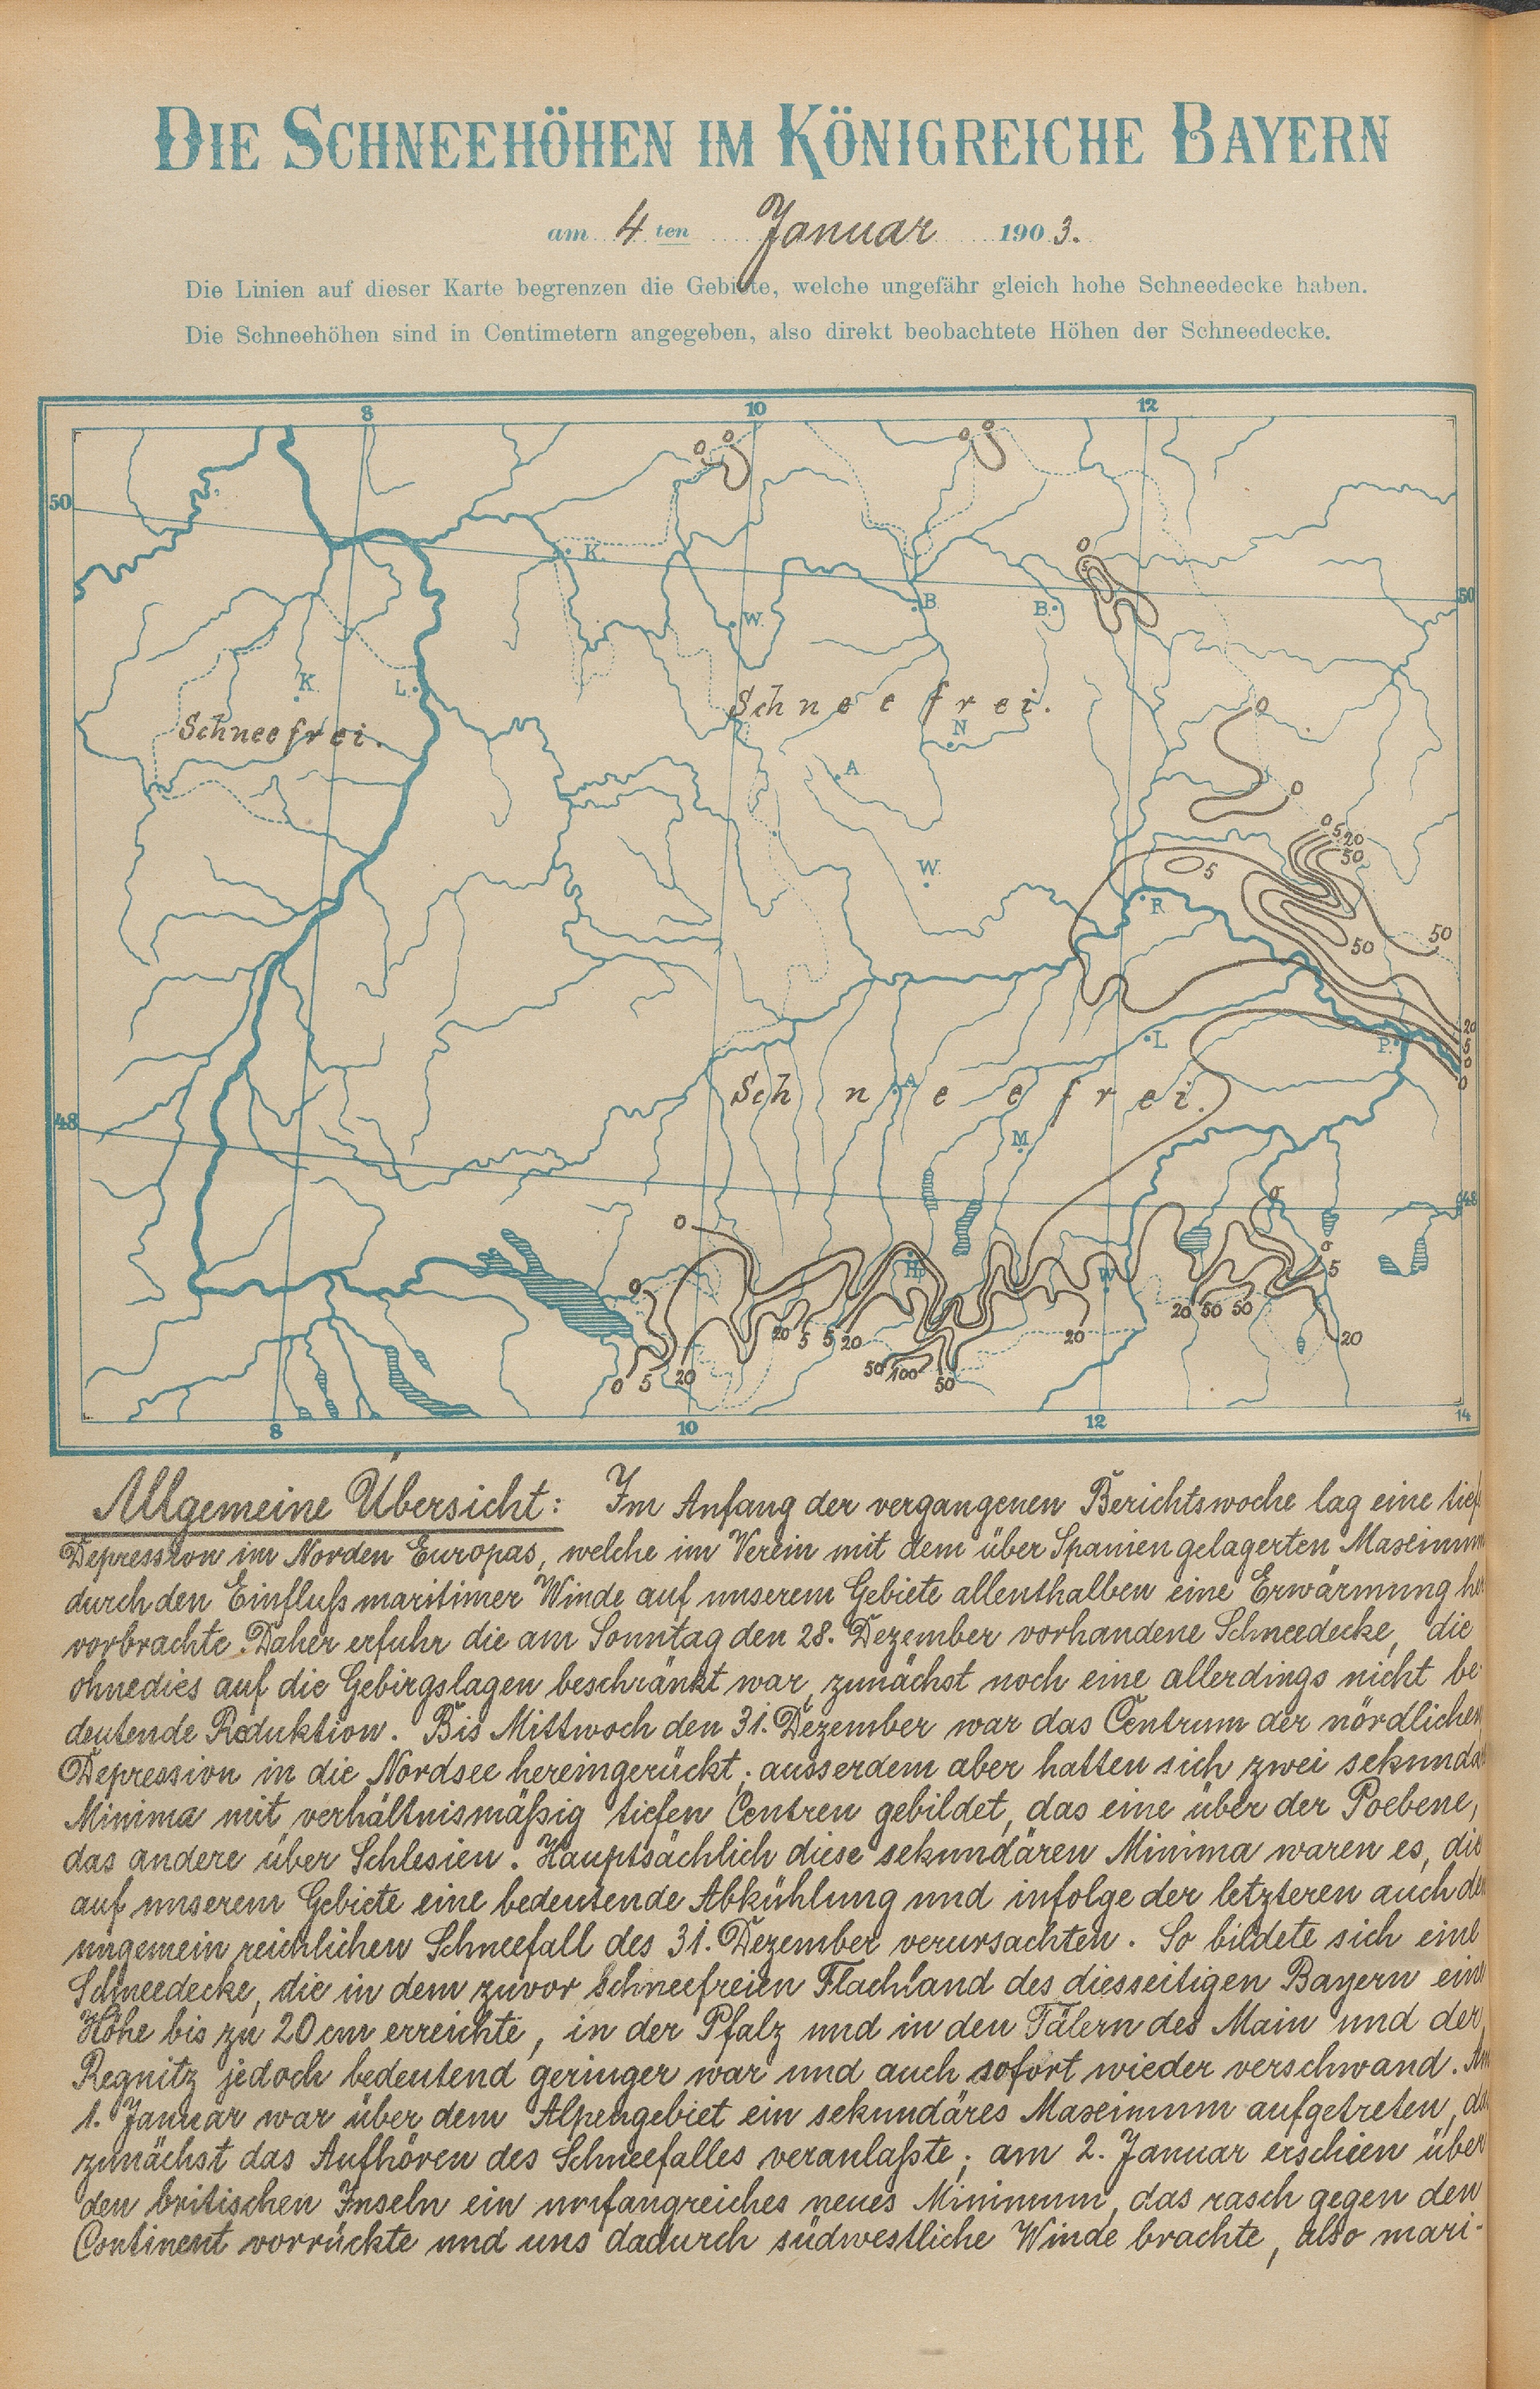 DIE SCHNEEHÖHEN IM KÖNIGREICHE BAYERN
am 4 ten Januar 1903.
Die Linien auf dieser Karte begrenzen die Gebiete, welche ungefähr gleich hohe Schneedecke haben.
Die Schneehöhen sind in Centimetern angegeben, also direkt beobachtete Höhen der Schneedecke.
8 10 12
0 0 0 0
50
K.
0
5
50
B. B.
W.
K. L.
Schneefrei.
0
Schneefrei.
N
A
0
0 5 20
50
W. 5
R
50 50
20
5
0
0
L P.
Schneefrei.
A
M
48
48
0
0
0 H W 0
5
20 50 50
20 5 5 20 20 20
50 100 50
0 5 20
8 10 12 14
Allgemeine Übersicht: Im Anfang der vergangenen Berichtswoche lag eine tief
Depression im Norden Europas, welche im Verein mit dem über Spanien gelagerten Maximum
durch den Einfluß maritimer Winde auf unserem Gebiete allenthalben eine Erwärmung her
vorbrachte. Daher erfuhr die am Sonntag den 28. Dezember vorhandene Schneedecke, die
ohnedies auf die Gebirgslagen beschränkt war, zunächst noch eine allerdings nicht be-
deutende Reduktion. Bis Mittwoch den 31. Dezember war das Centrum der nördlichen
Depression in die Nordsee hereingerückt; ausserdem aber hatten sich zwei sekundä
Minima mit verhältnismäßig tiefen Centren gebildet, das eine über der Poebene,
das andere über Schlesien. Hauptsächlich diese sekundären Minima waren es, die
auf unserem Gebiete eine bedeutende Abkühlung und infolge der letzteren auch den
ungemein reichlichen Schneefall des 31. Dezember verursachten. So bildete sich eine
Schneedecke, die in dem zuvor schneefreien Flachland des diesseitigen Bayern eine
Höhe bis zu 20 cm erreichte, in der Pfalz und in den Tälern des Main und der
Regnitz jedoch bedeutend geringer war und auch sofort wieder verschwand. Am
1. Januar war über dem Alpengebiet ein sekundäres Maximum aufgetreten, das
zunächst das Aufhören des Schneefalles veranlaßte; am 2. Januar erschien über
den britischen Inseln ein umfangreiches neues Minimum, das rasch gegen den
Continent vorrückte und uns dadurch südwestliche Winde brachte, also mari-